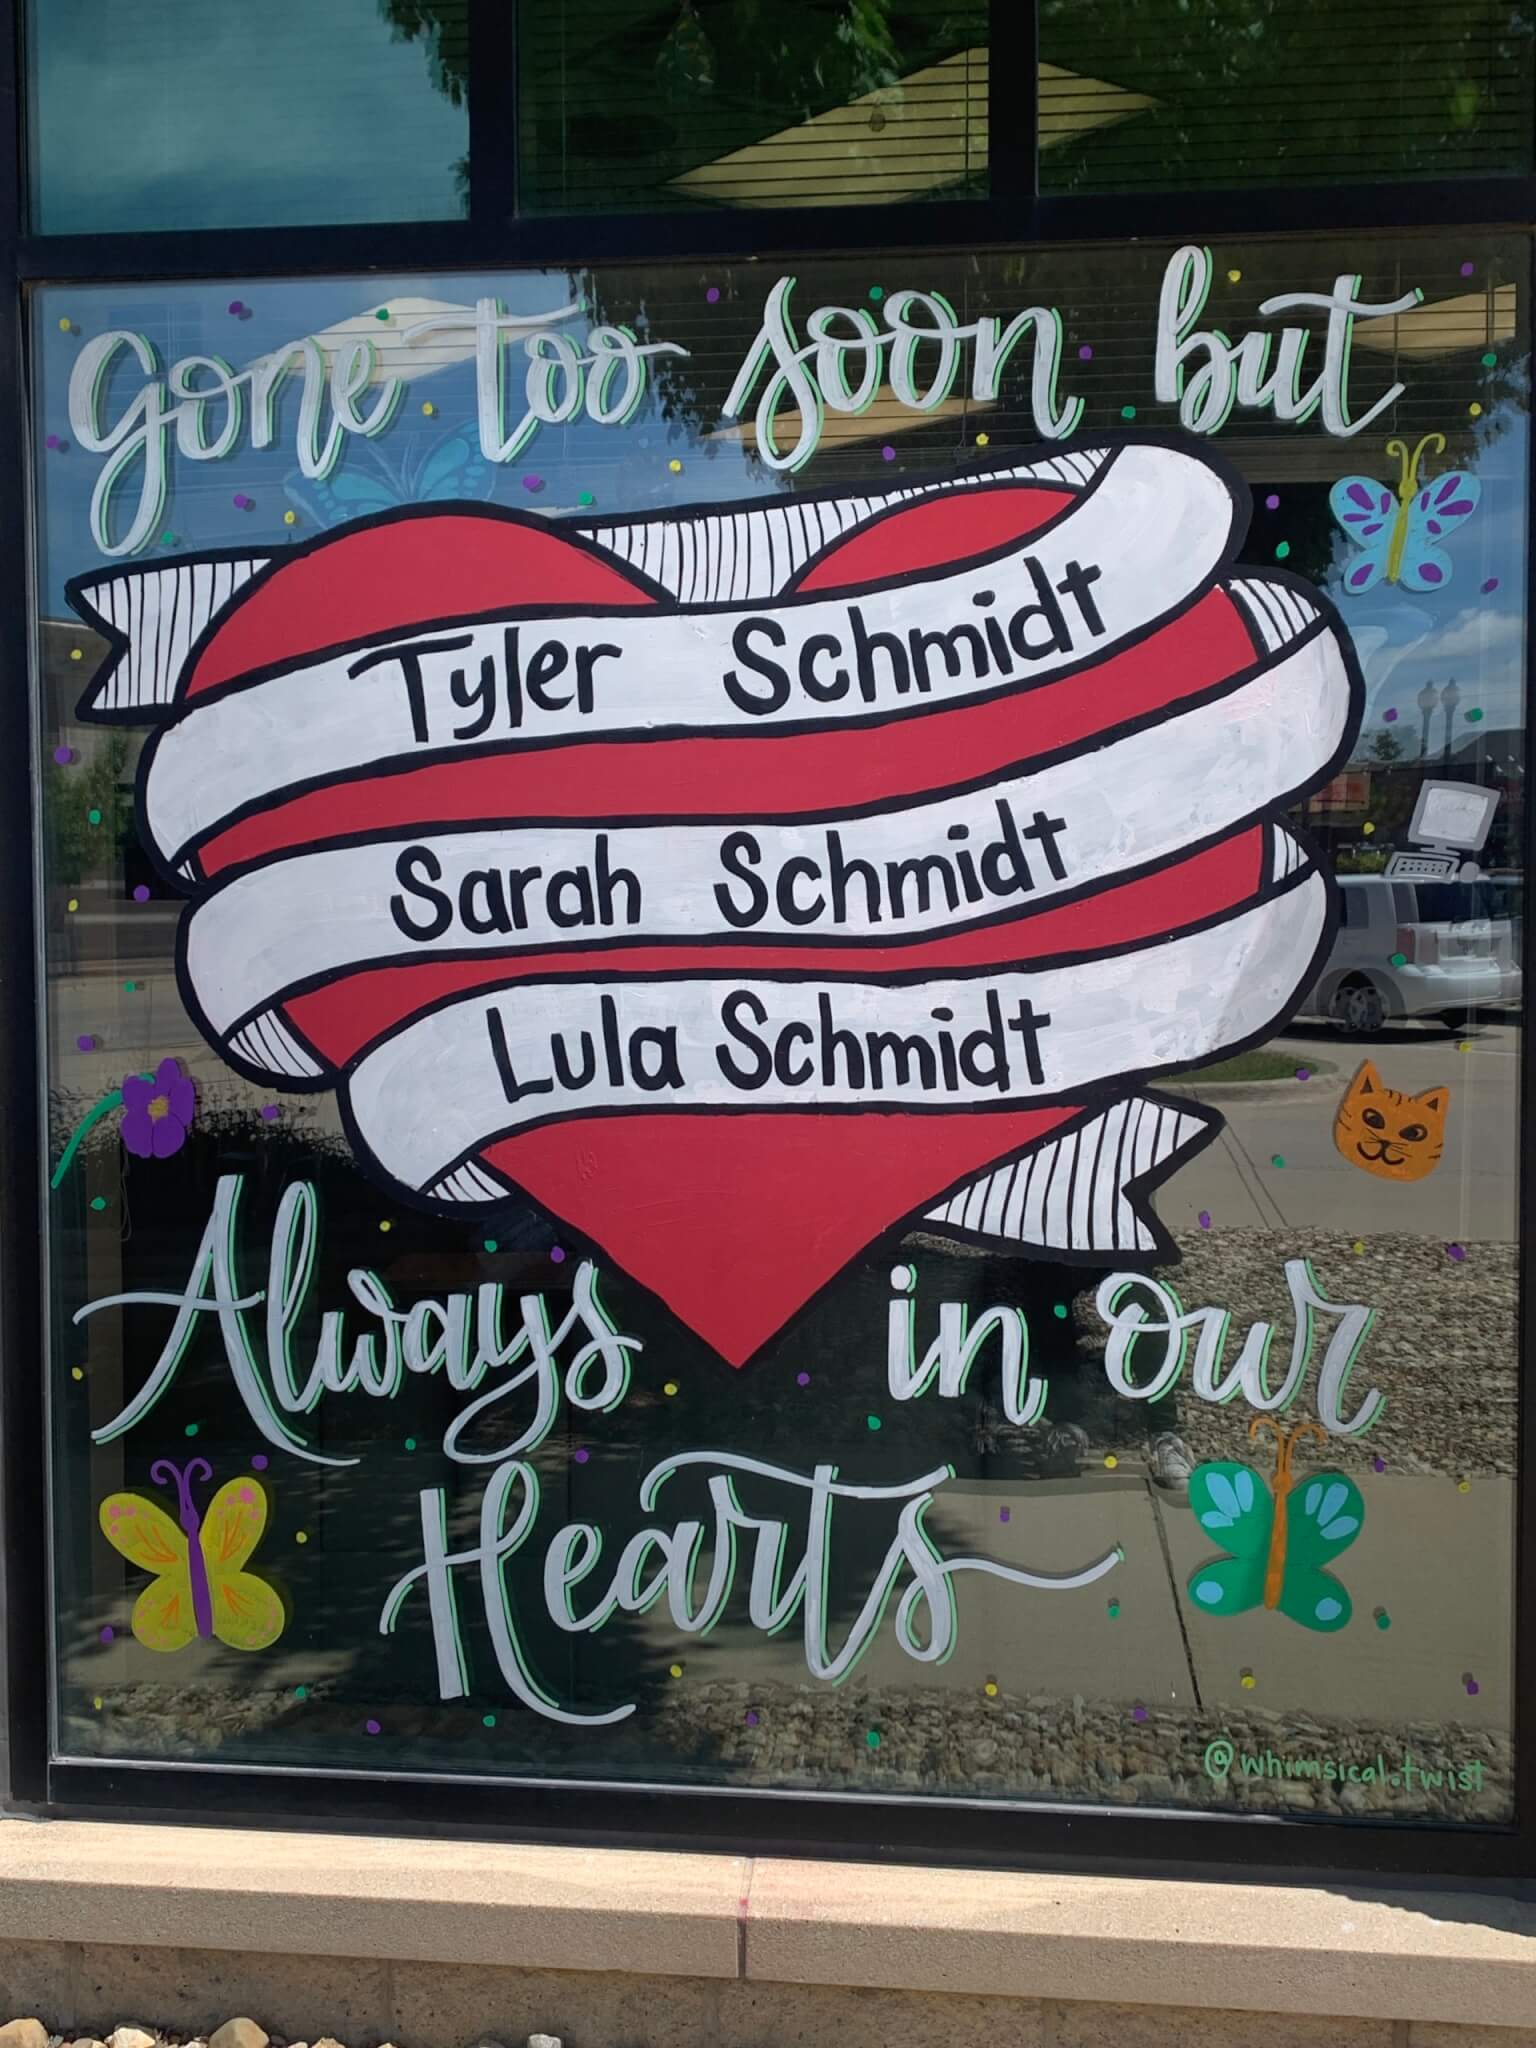 gone too soon but
Tyler Schmidt
Sarah Schmidt
Lula Schmidt
Always in our
Hearts
@whimsical.twist